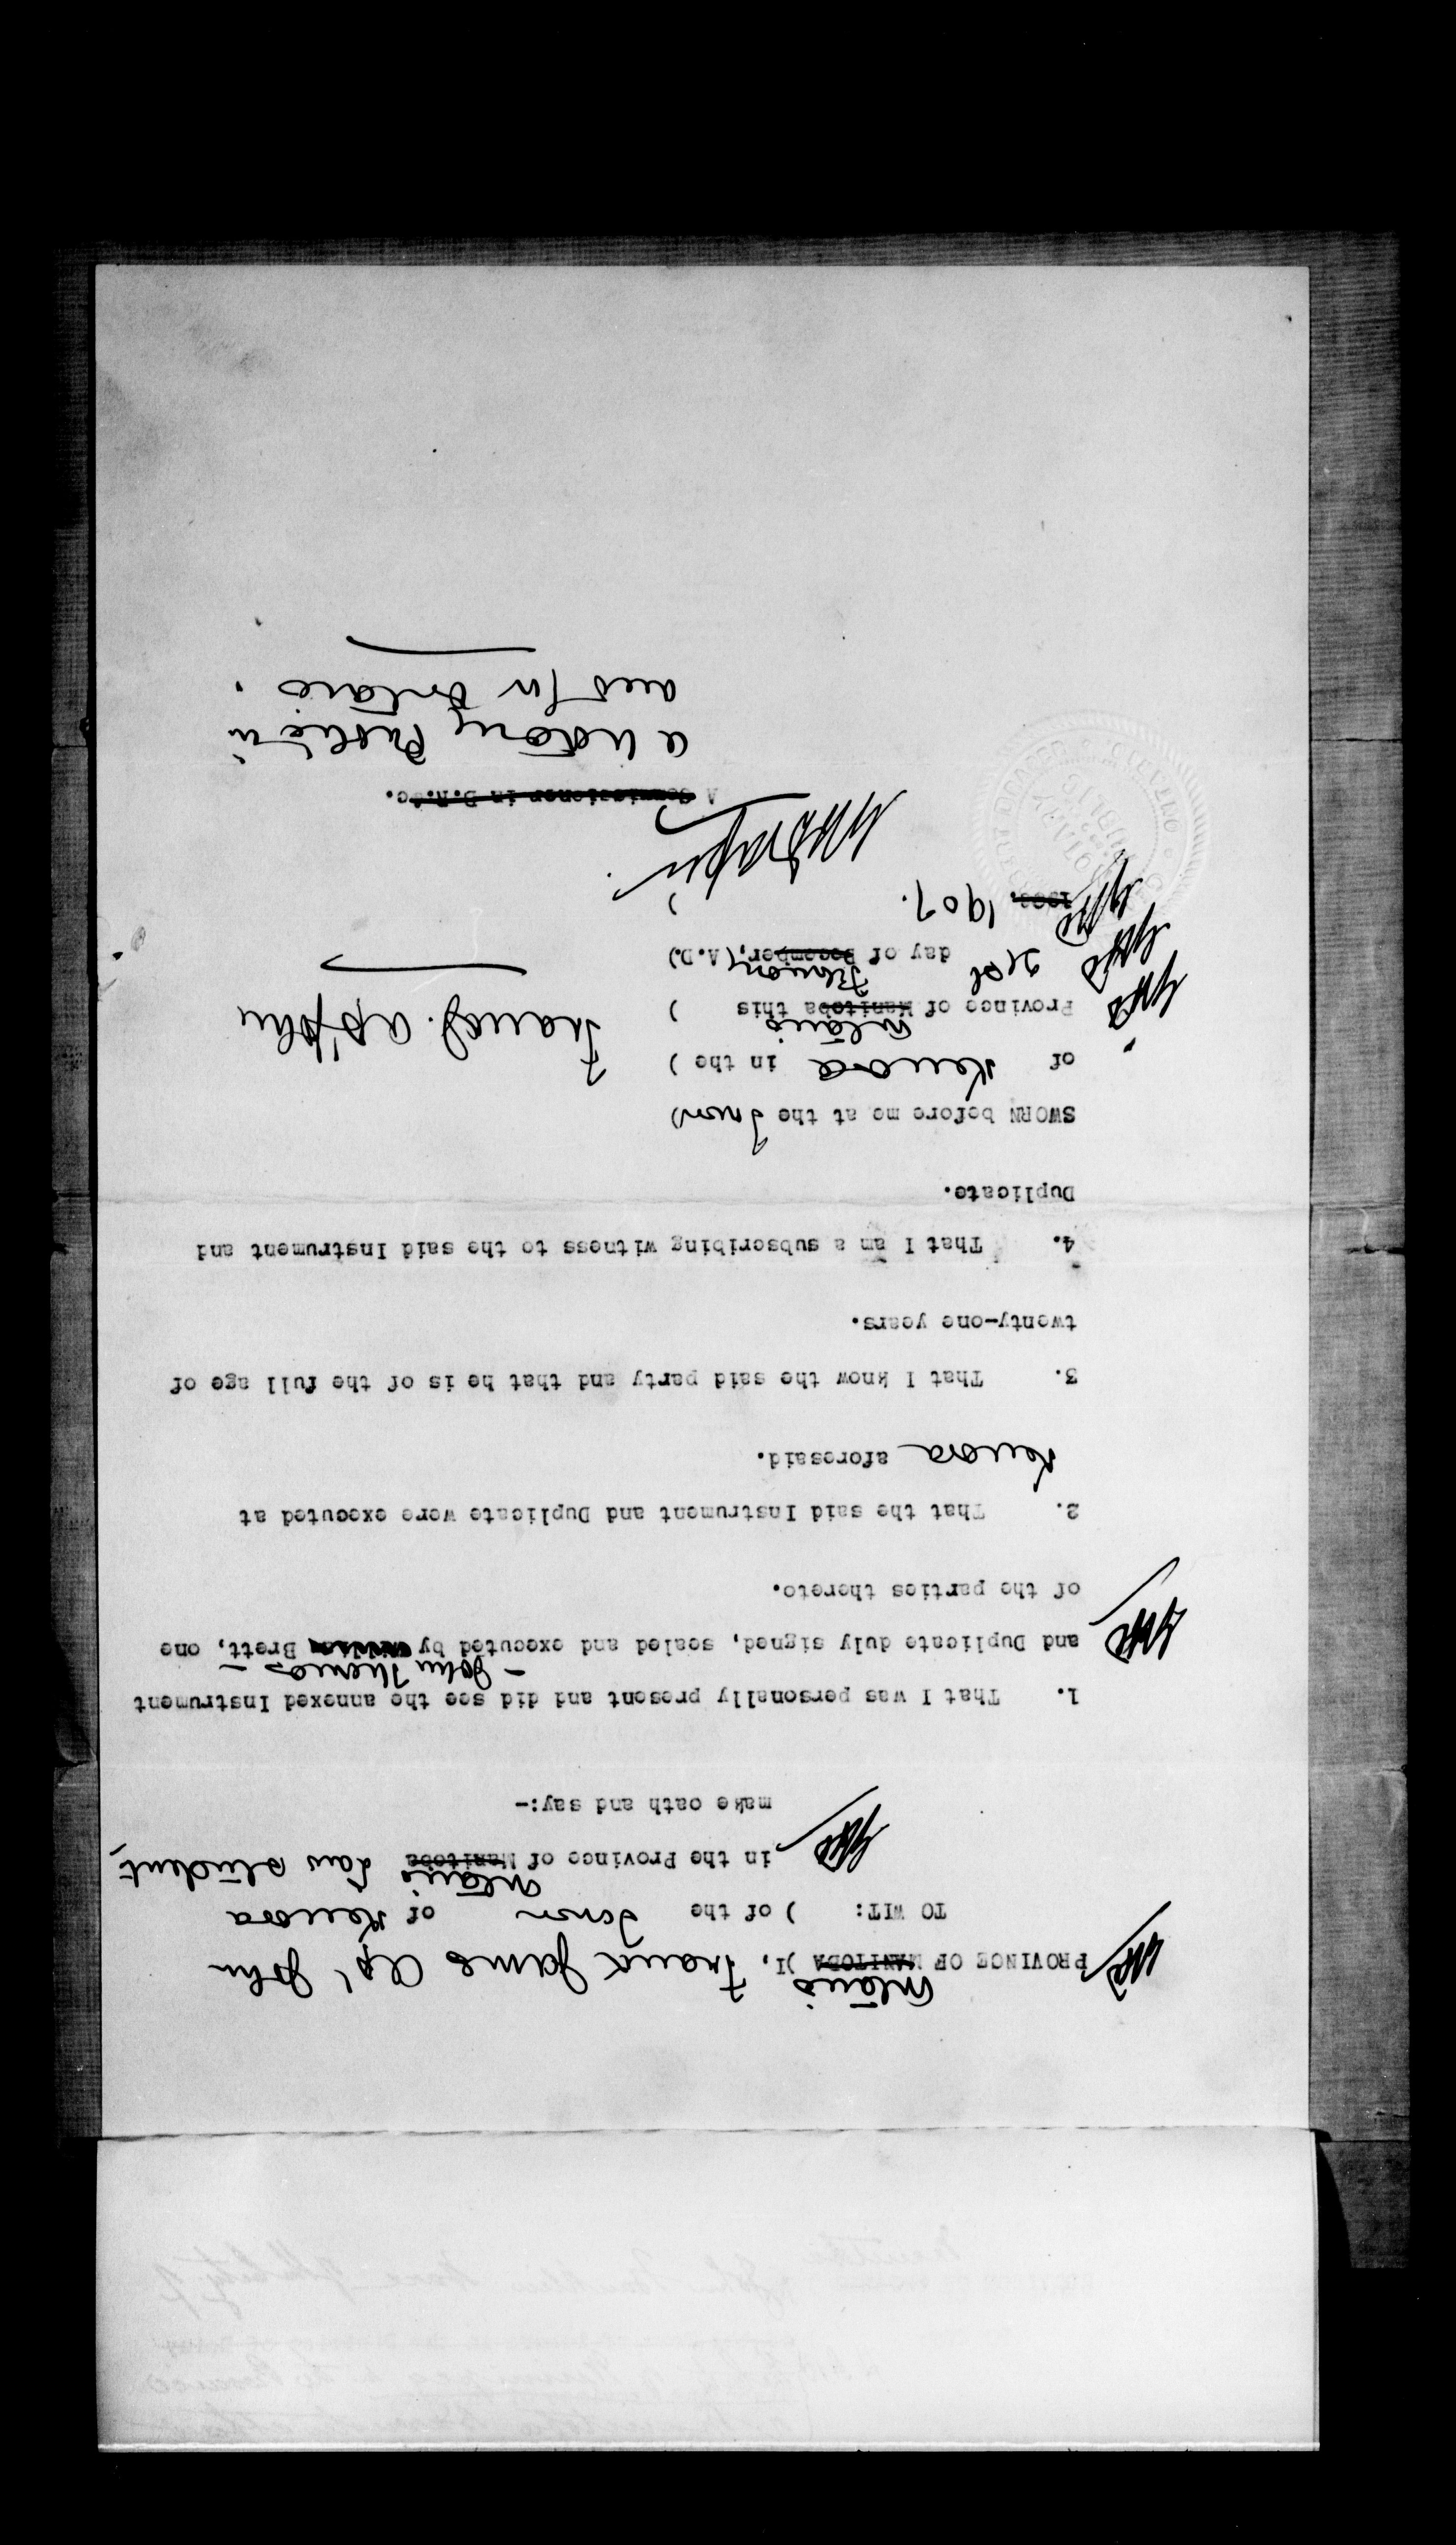 Ontario
PROVINCE OF MANITOBA ) I, Frank James Ap' John
TO WIT: ) of the Town of Kenora
Ontario
in the Province of Manitoba Law Student,
make oath and say:-
1. That I was personally present and did see the annexed Instrument
- John Thomas -
and Duplicate duly signed, sealed and executed by Brett, one
of the parties thereto.
2. That the said Instrument and Duplicate were executed at
Kenora aforesaid.
3. That I know the said party and that he is of the full age of
twenty-one years.
4. That I am a subscribing witness to the said Instrument and
Duplicate.
SWORN before me at the Town )
of Kenora in the )
Ontario
Province of Manitoba this ) Frank J. Ap'John
February
day of December, (A.D.)
1907. )
A Commissioner in B.R.&c.
a Notary Public in
and for Ontario.